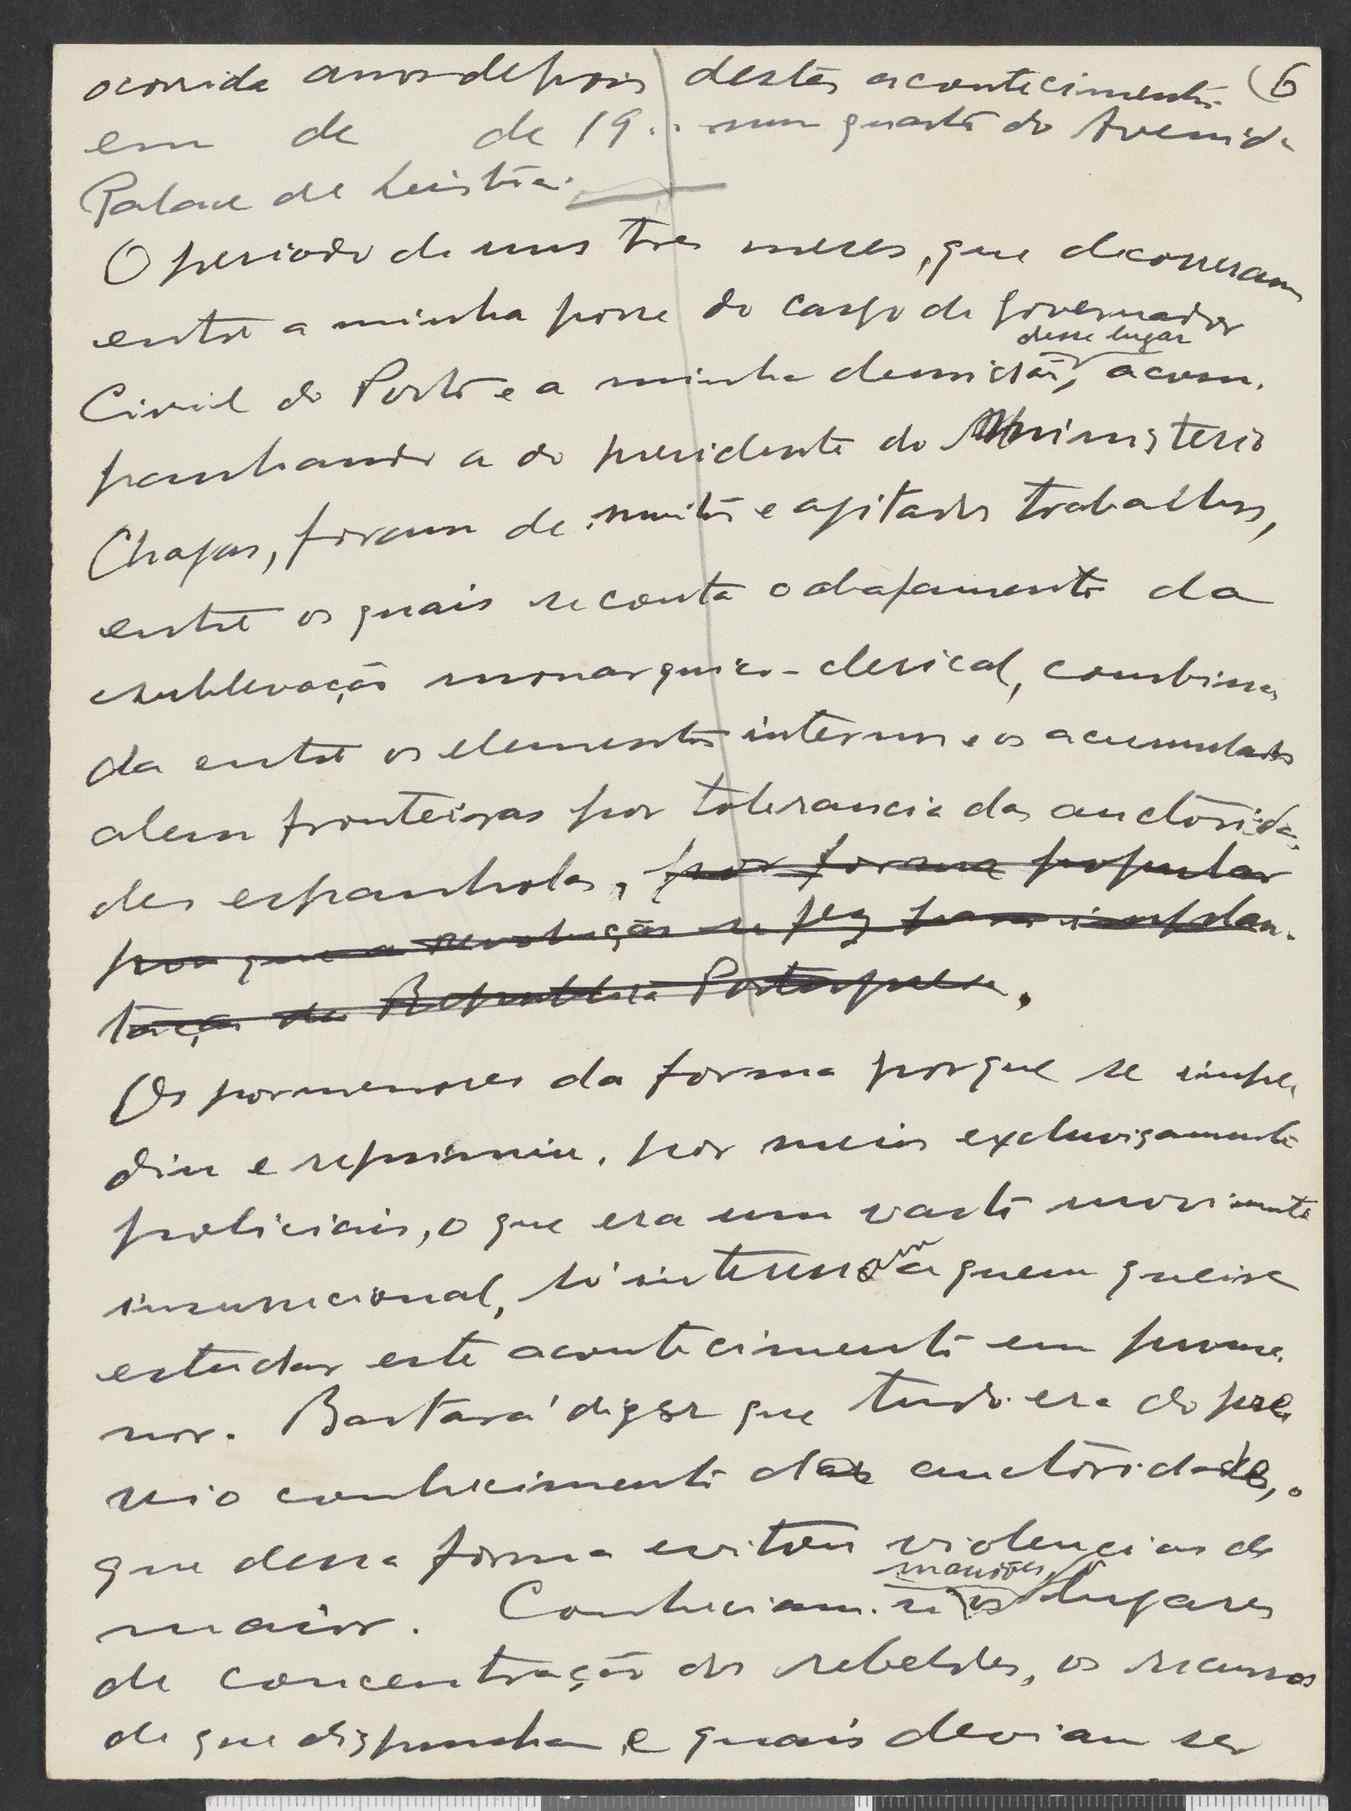 ocorrida anos depois destes acontecimentos 6
em de de 19.. num quarto do Avenida
Palace de Lisboa.
O periodo de uns tres meses, que decorreram
entre a minha posse do cargo de Governador
desse lugar
Civil do Porto e a minha demissão, acom-
panhando a do presidente do Ministerio
Chagas, foram de muitos e agitados trabalhos,
entre os quais se conta o abafamento da
sublevação monarquico-clerical, combina-
da entre os elementos internos e os acumulados
alem fronteiras por tolerancia das auctorida-
des espanholas, por forma popular
por que a revolução se fez para implan-
tação da Republica Portuguesa.
Os pormenores da forma porque se impe-
diu e reprimiu, por meios exclusivamente
policiais, o que era um vasto movimento
insurrecional, só interessam a quem queira
estudar este acontecimento em porme-
nor. Bastará dizer que tudo era do pre-
vio conhecimento das auctoridades, o
que dessa forma evitou violencias de
maior. Conheciam-se os lugares
de concentração dos rebeldes, os recursos
de que dispunham e quais deviam ser